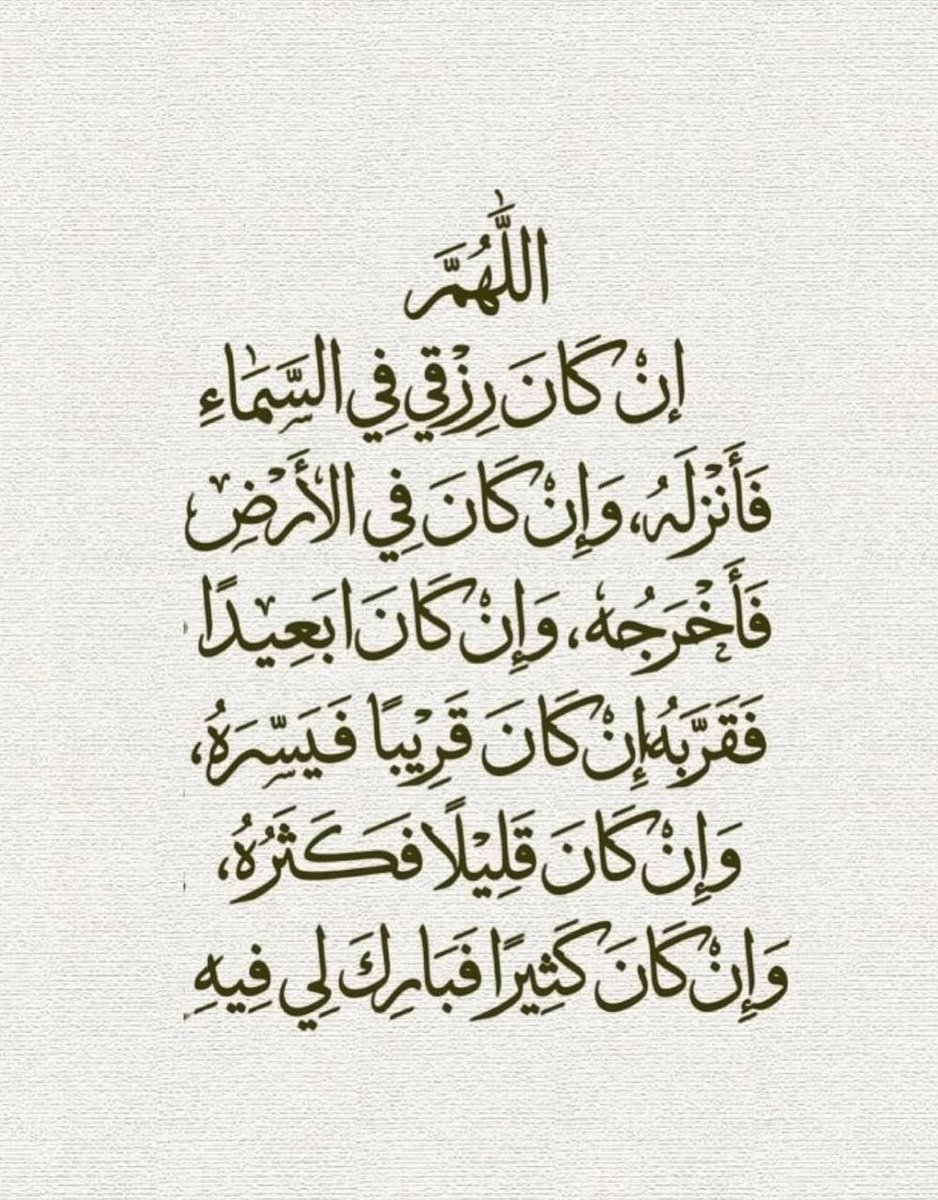 اللَّهُمَّ
إنْ كَانَ رِزْقِي فِي السَّمَاءِ
فَأَنْزِلَهُ، وَإِنْ كَانَ فِي الأَرْضِ
فَأَخْرَجُهْ، وَإِنْ كَانَ ابَعِيدًا
فَقَرَّبَهُ إِنْ كَانَ قَرِيْبًا فَيَسِّرَهُ،
وَإِنْ كَانَ قَلِيْلًا فَكَثَرُهُ،
وَإِنْ كَانَ كَثِيرًا فَبَارِكَ لِي فِيهِ